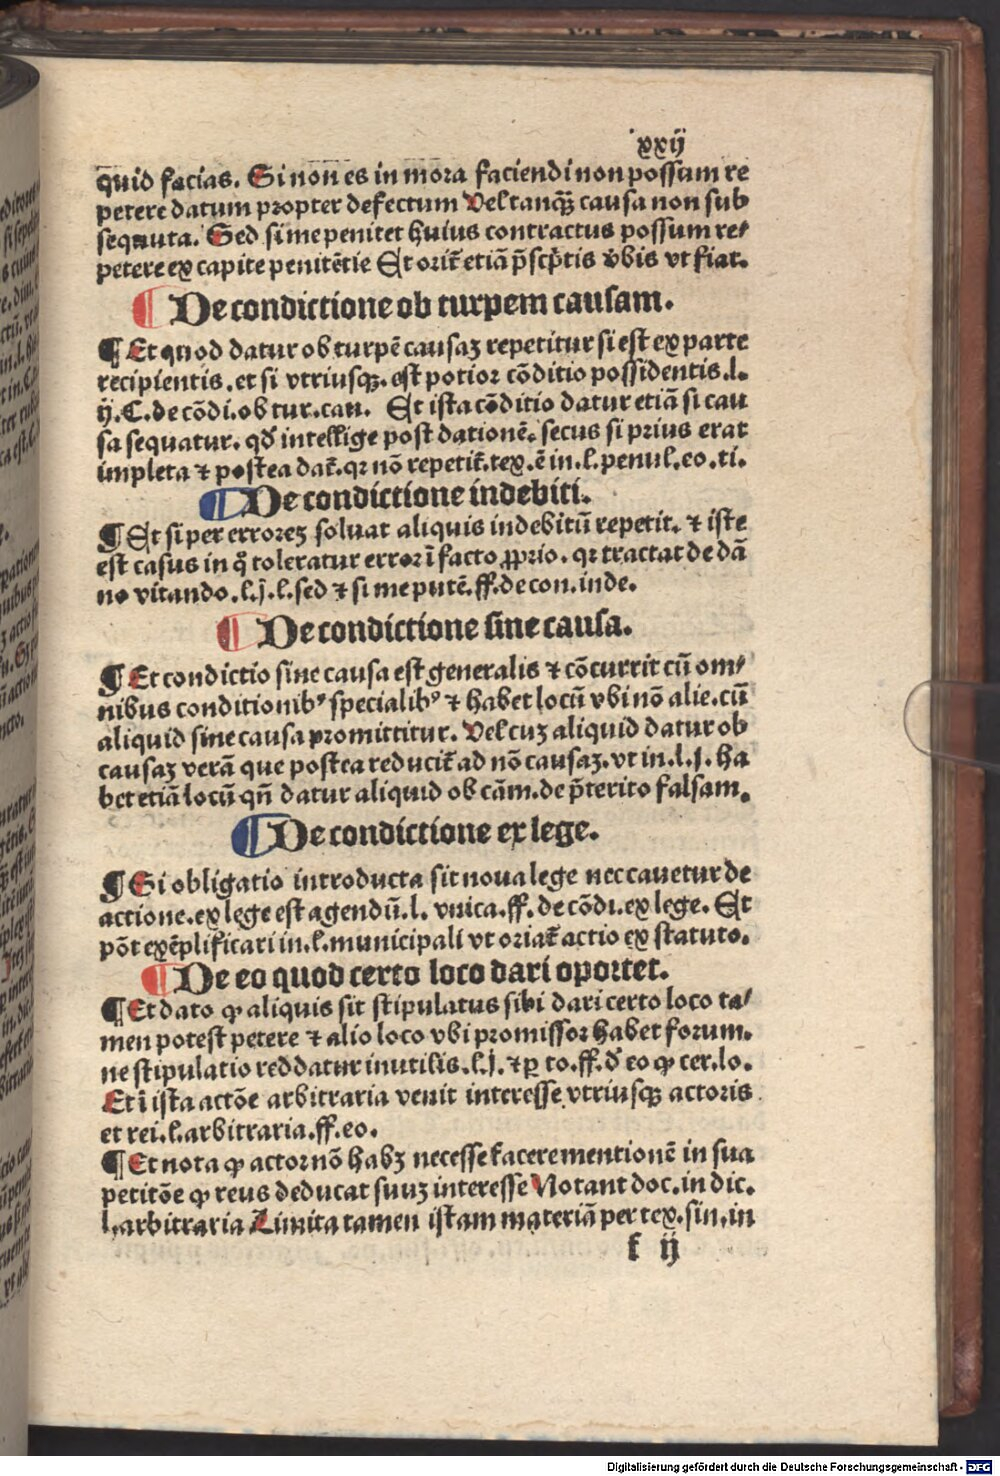 xxij
quid facias. Si non es in mora faciendi non possum re
petere datum propter defectum Vel tanqȝ causa non sub
sequuta. Sed si me penitet huius contractus possum re/
petere ex capite penitētie Et orit᷑ etiā p̄scp̄tis v̄bis vt fiat.
¶ De condictione ob turpem causam.
¶ Et quod datur ob turpē causaȝ repetitur si est ex parte
recipientis. et si vtriusqȝ. est potior cōditio possidentis. l.
ij. C. de cōdi. ob tur. cau. Et ista cōditio datur etiā si cau
sa sequatur. qd̄ intellige post dationē. secus si prius erat
impleta ⁊ postea dat᷑. qꝛ nō repetit᷑. tex. ē in. l. penul. eo. ti.
¶ De condictione indebiti.
¶ Et si per erroreȝ soluat aliquis indebitū repetit. ⁊ iste
est casus in q̊ toleratur error ī facto ꝓprio. qꝛ tractat de dā
no vitando. l. j. l. sed ⁊ si me putē. ff. de con. inde.
¶ De condictione sine causa.
¶ Et condictio sine causa est generalis ⁊ cōcurrit cū om/
nibus conditionibꝰ specialibꝰ ⁊ habet locū vbi nō alie. cū
aliquid sine causa promittitur. Vel cuȝ aliquid datur ob
causaȝ verā que postea reducit᷑ ad nō causaȝ. vt in. l. j. ha
bet etiā locū qn̄ datur aliquid ob cām. de p̄terito falsam.
¶ De condictione ex lege.
¶ Si obligatio introducta sit noua lege nec cauetur de
actione. ex lege est agendū. l. vnica. ff. de cōdi. ex lege. Et
pōt exēplificari in. l. municipali vt oriat᷑ actio ex statuto.
¶ De eo quod certo loco dari oportet.
¶ Et dato ꝙ aliquis sit stipulatus sibi dari certo loco ta/
men potest petere ⁊ alio loco vbi promissor habet forum.
ne stipulatio reddatur inutilis. l. j. ⁊ ꝑ to. ff. d̄ eo ꝙ cer. lo.
Et ī ista actōe arbitraria venit interesse vtriusqȝ actoris
et rei. l. arbitraria. ff. eo.
¶ Et nota ꝙ actor nō habȝ necesse facere mentionē in sua
petitōe ꝙ reus deducat suuȝ interesse Notant doc. in dic.
l. arbitraria Limita tamen istam materiā per tex. sin. in
f ij
Digitalisierung gefördert durch die Deutsche Forschungsgemeinschaft - DFG